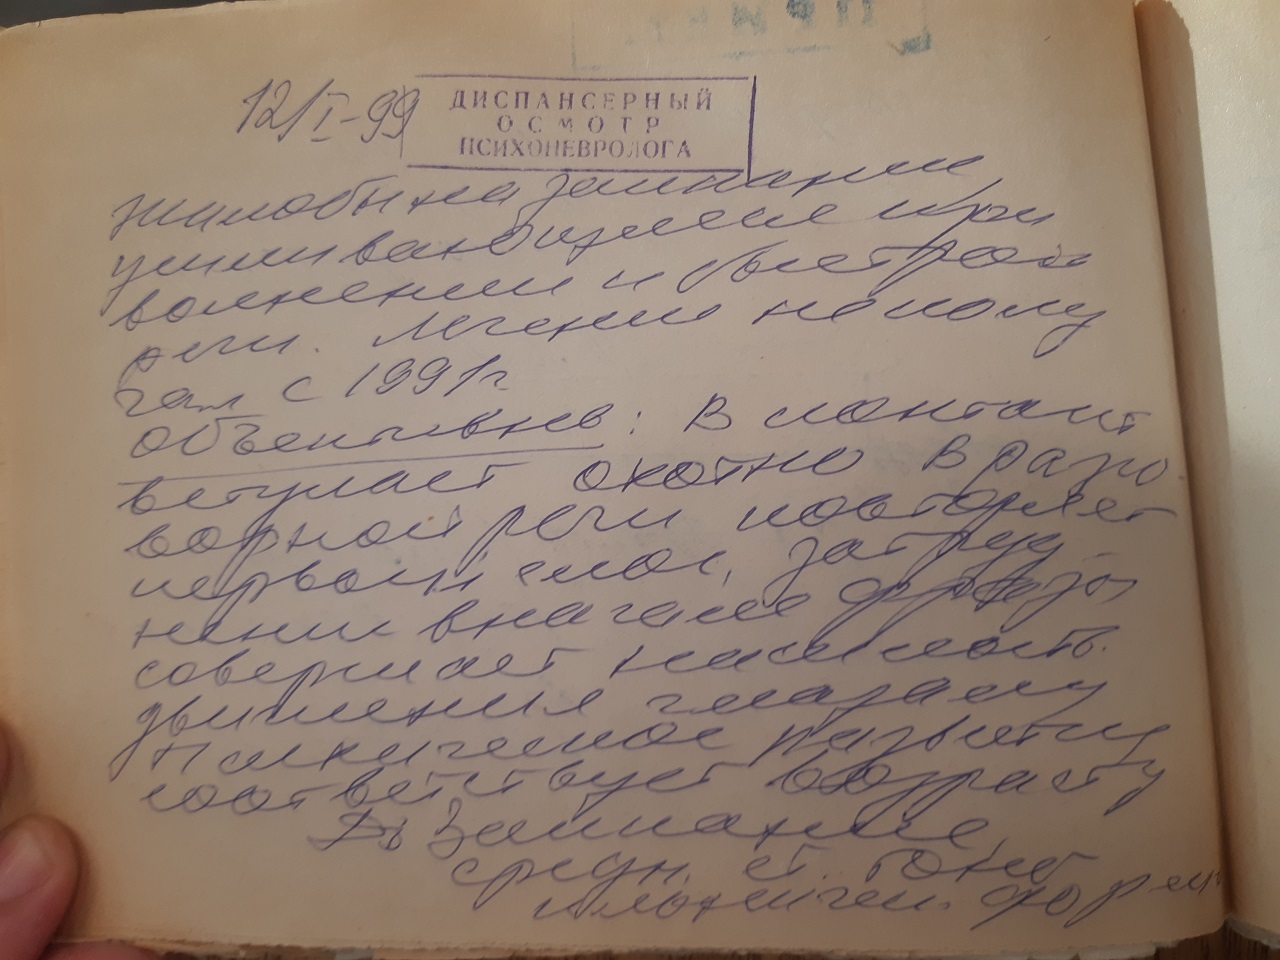 12/I-99
ДИСПАНСЕРНЫЙ
ОСМОТР
ПСИХОНЕВРОЛОГА
Жалобы на заикание,
усиливающееся при
волнении и быстрой
речи. Лечение не полу
чал с 1991г.
Объективно: В контакт
вступает охотно В разго
ворной речи повторяет
первый слог, затруд-
нения вначале фразы
совершает насильств.
движения глазами
Психическое развитие
соответствует возрасту
Ds Заикание,
средн. ст. тоно
клоническ. форма